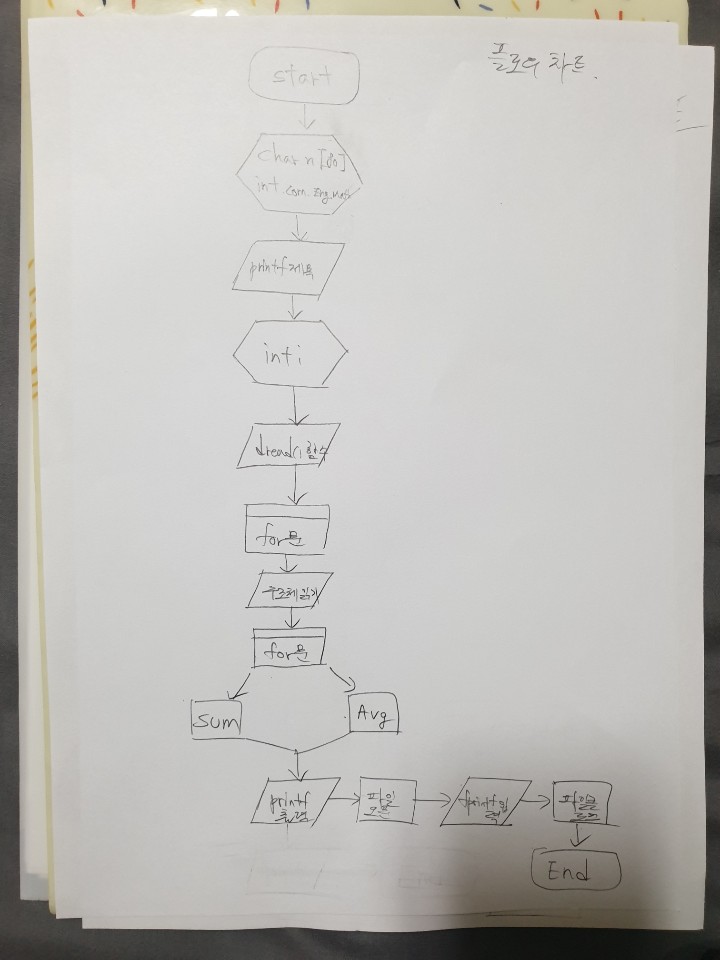 플로우 차트.
start
char n[80]
int com Eng Math
printf 제목
int i
dread() 함수
for문
구조체 읽기
for문
Sum
Avg
printf
출력
파일
오픈
fprintf 입
력
파일클
로즈
End